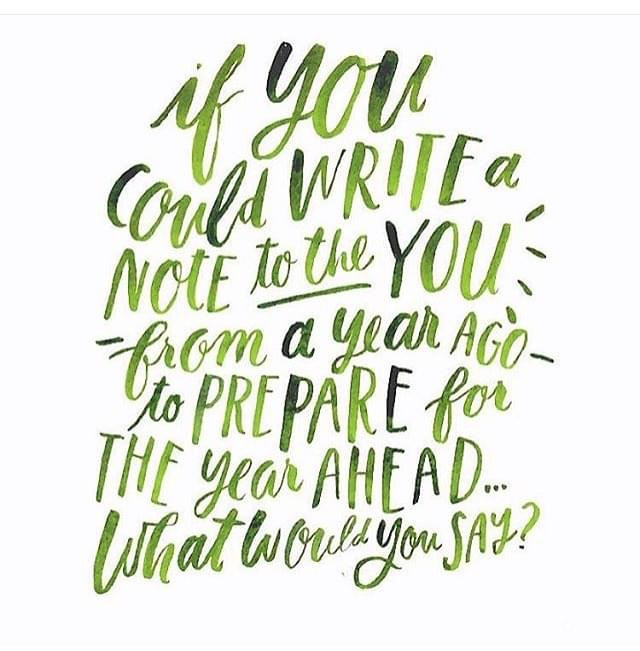 if you
could WRITE a
NOTE to the YOU
from a year AGO
to PREPARE for
THE year AHEAD...
What would you SAY?